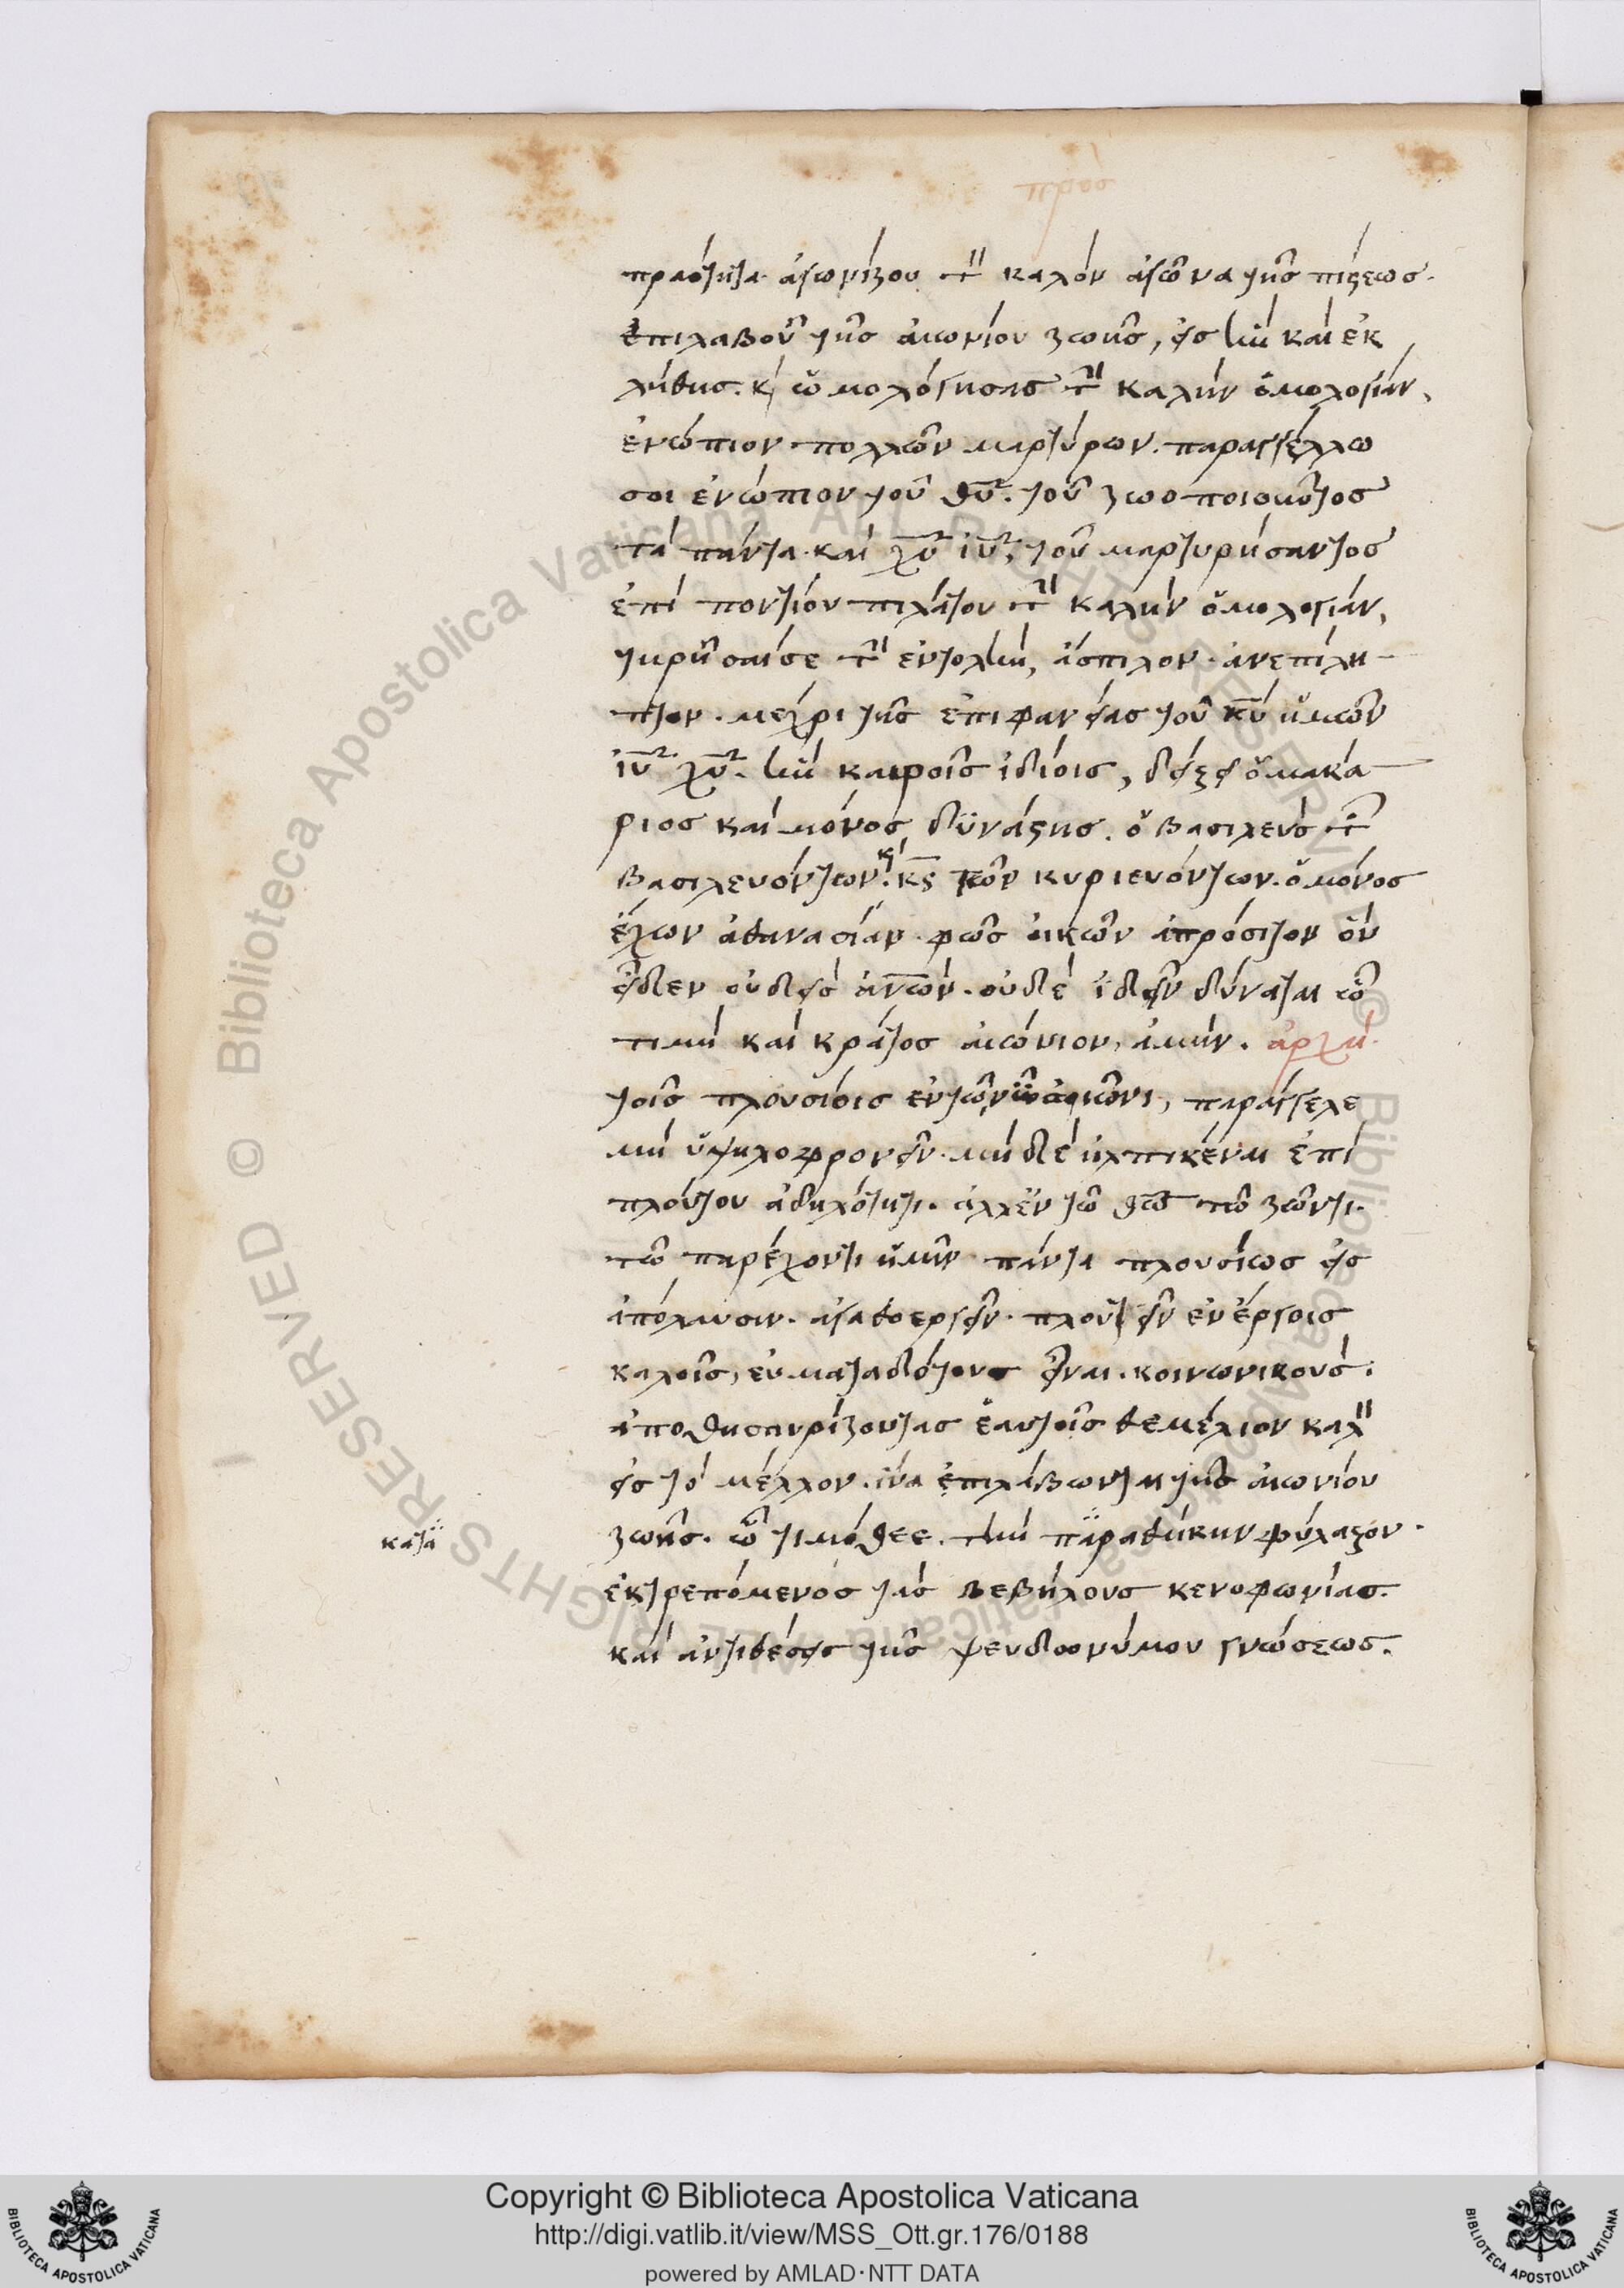 πραότητα· ἀγωνίζου τὸν καλὸν ἀγῶνα τῆς πίστεως·
ἐπιλαβοῦ τῆς αἰωνίου ζωῆς, εἰς ἣν καὶ ἐκ
λήθης. κ̀ ὡμολόγησας τὴν καλὴν ὁμολογίαν,
ἐνώπιον πολλῶν μαρτύρων. παραγγέλλω
σοι ἐνώπιον τοῦ θυ̅. τοῦ ζωοποιοῦντος
τὰ πάντα· καὶ χυ̅ ιυ̅, τοῦ μαρτυρήσαντος
ἐπὶ ποντίου πιλάτου τὴν καλὴν ὁμολογίαν,
τηρῆσαί σε τὴν ἐντολὴν, ἄσπιλον· ἀνεπίλη-
πτον· μέχρι τῆς ἐπιφανείας τοῦ κυ̅ ἡμῶν
ιυ̅ χυ̅. ἣν καιροῖς ἰδίοις, δείξει ὁ μακά-
ριος καὶ μόνος δυνάστης. ὁ βασιλεὺς τῶν
βασιλευόντων. κ̀ κς̅ τῶν κυριευόντων. ὁ μόνος
ἔχων ἀθανασίαν· φῶς οἰκῶν ἀπρόσιτον ὃν
εἶδεν οὐδεὶς ἀνω̅ν· οὐδὲ ἰδεῖν δύναται ᾧ
τιμὴ καὶ κράτος αἰώνιον, ἀμήν. ἀρχή·
τοῖς πλουσίοις ἐν τῶ νῦν αἰῶνι, παράγγελε
μὴ ὑψηλοφρονεῖν· μὴ δὲ ἠλπικέναι ἐπὶ
πλούτου ἀδηλότητι· ἀλλ' ἐν τῶ θω̅ τῶ ζῶντι·
τῶ παρέχοντι ἡμῖν πάντα πλουσίως εἰς
ἀπόλαυσιν· ἀγαθοεργεῖν· πλουτεῖν ἐν ἔργοις
καλοῖς, εὐμεταδότους εἶναι· κοινωνικούς·
ἀποθησαυρίζοντας ἑαυτοῖς θεμέλιον καλὸν
εἰς τὸ μέλλον· ἵνα ἐπιλάβωνται τῆς αἰωνίου
ζωῆς· ὦ τιμόθεε· τὴν παραθήκην φύλαξον·
κατα
ἐκτρεπόμενος τὰς βεβήλους κενοφωνίας·
καὶ ἀντιθέσεις τῆς ψευδωνύμου γνώσεως.
Copyright © Biblioteca Apostolica Vaticana
http://digi.vatlib.it/view/MSS_Ott.gr.176/0188
powered by AMLAD·NTT DATA